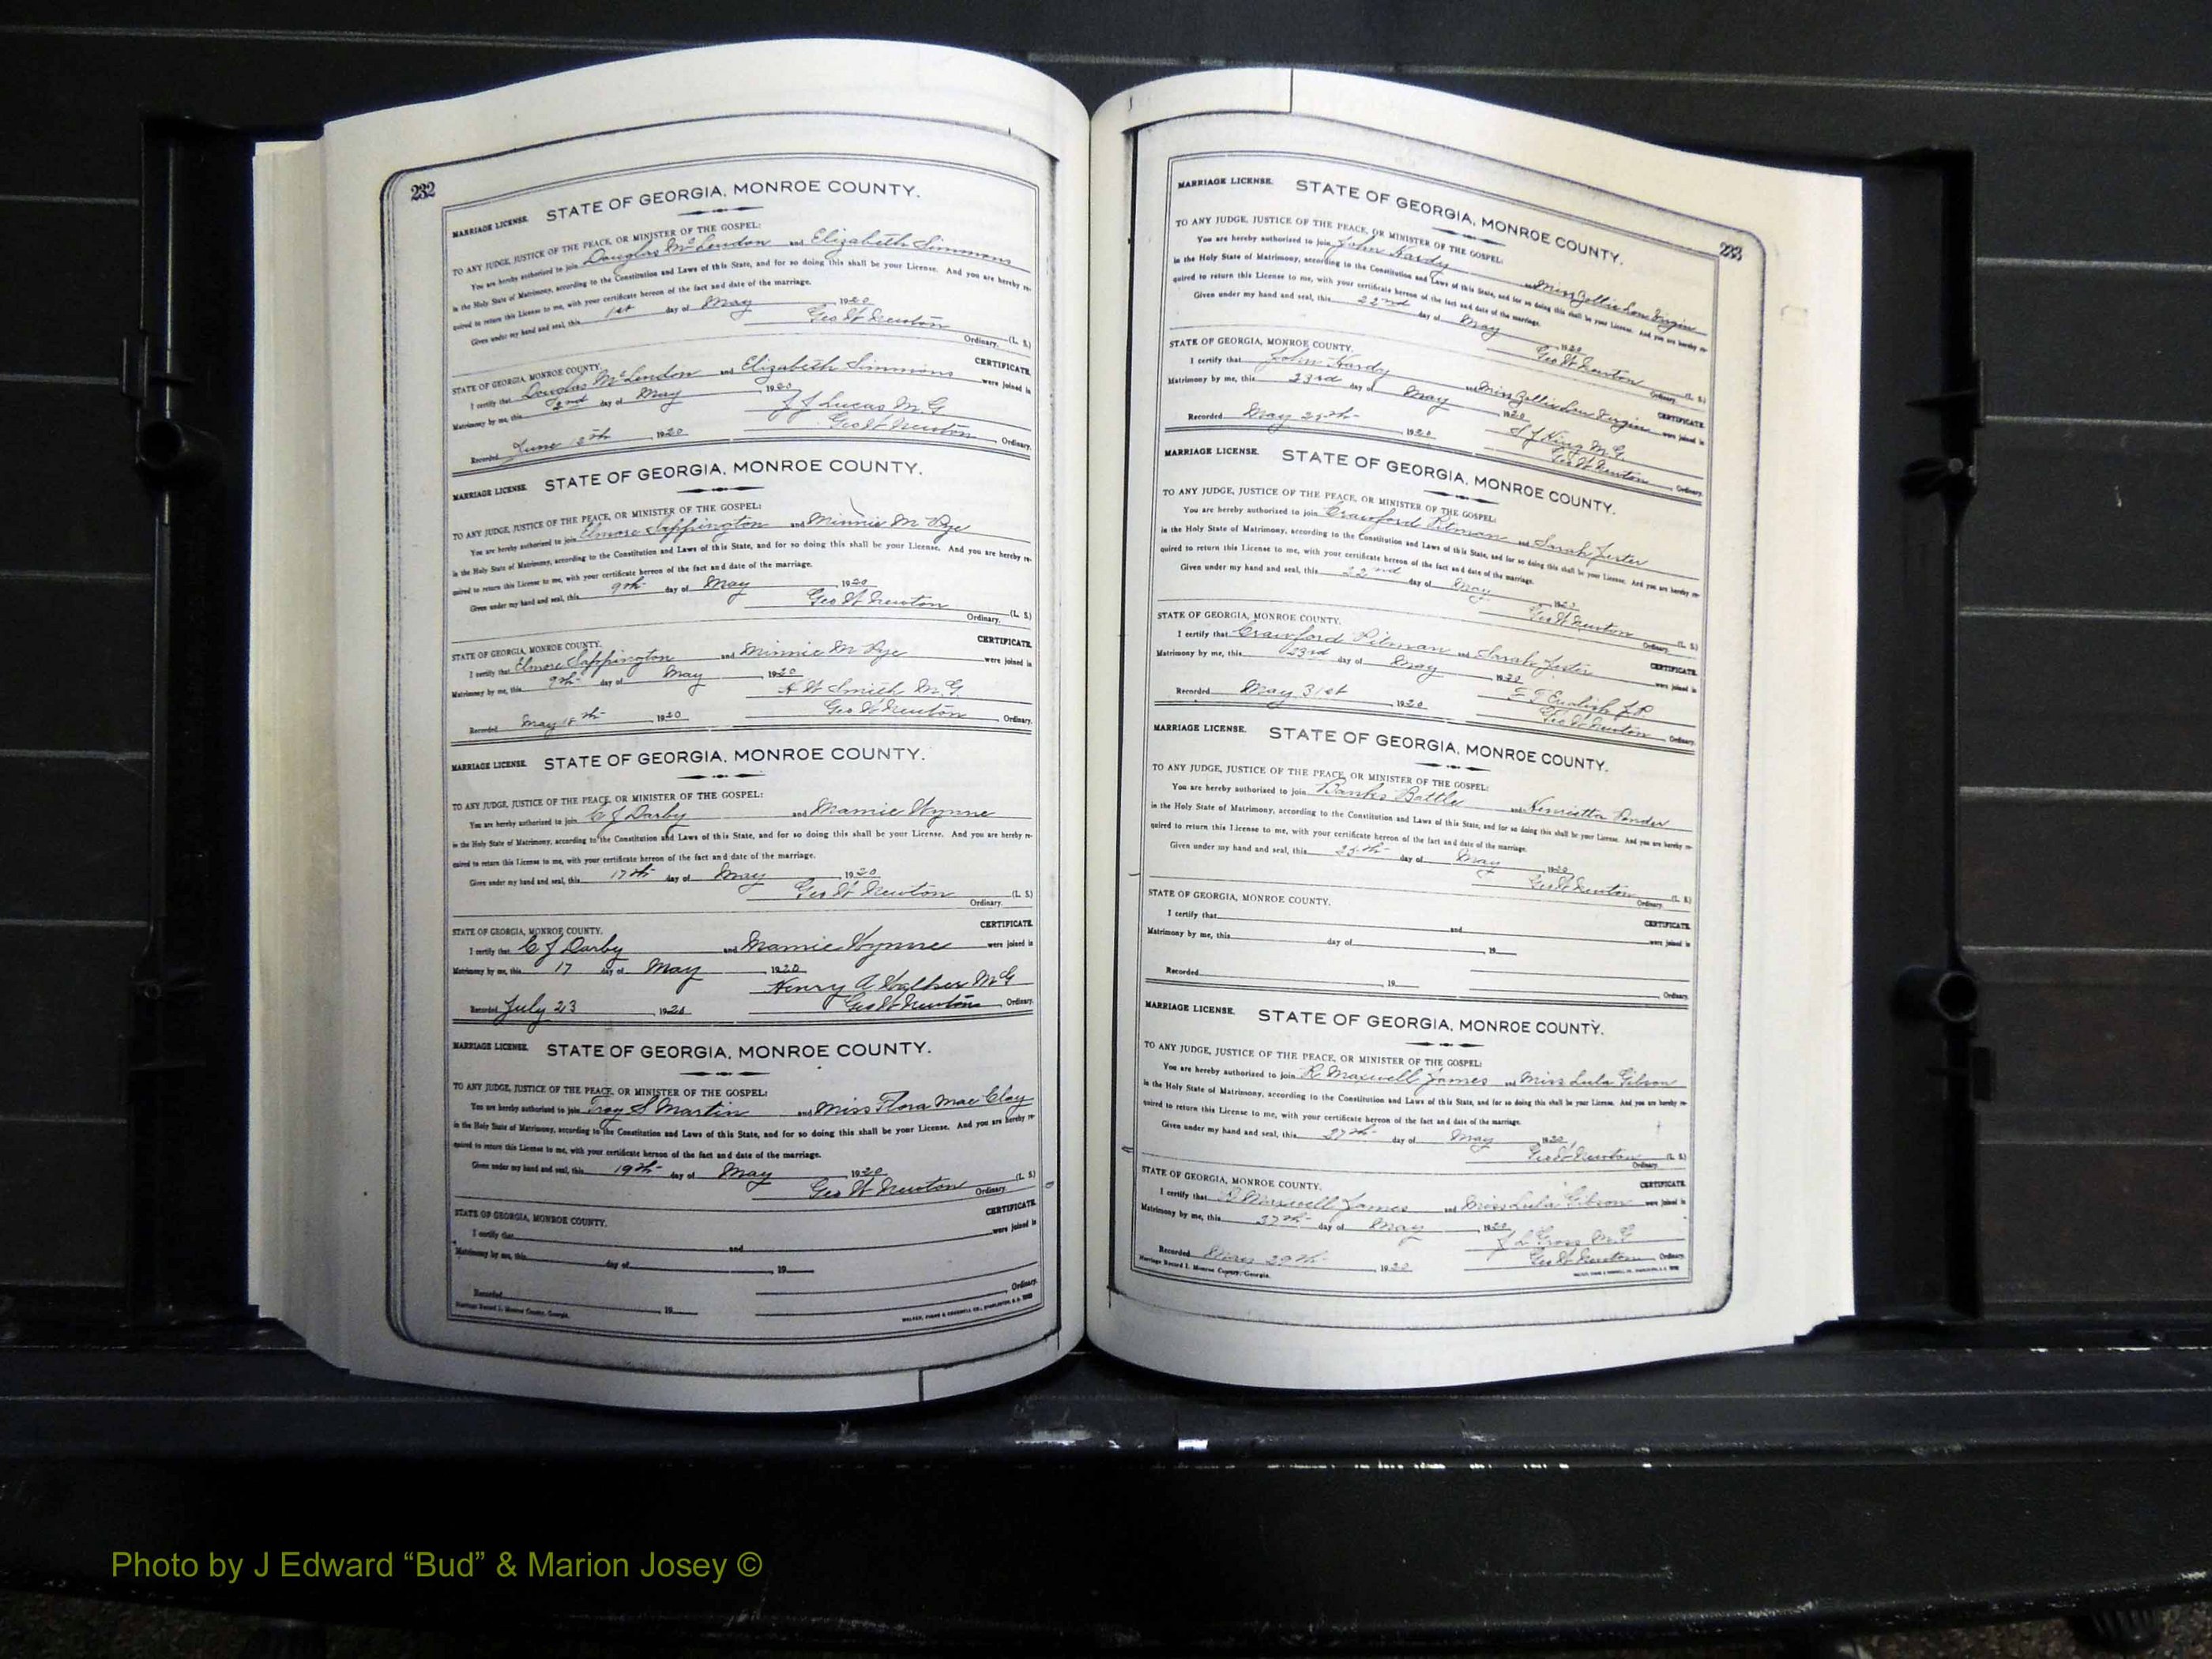 232
MARRIAGE LICENSE. STATE OF GEORGIA, MONROE COUNTY.
TO ANY JUDGE, JUSTICE OF THE PEACE, OR MINISTER OF THE GOSPEL:
You are hereby authorized to join Douglas McLendon and Elizabeth Simmons
in the Holy State of Matrimony, according to the Constitution and Laws of this State, and for so doing this shall be your License. And you are hereby re-
quired to return this License to me, with your certificate hereon of the fact and date of the marriage.
Given under my hand and seal, this 1st day of May 1920
Geo W Newton (L. S.)
Ordinary.
STATE OF GEORGIA, MONROE COUNTY. CERTIFICATE.
I certify that Douglas McLendon and Elizabeth Simmons were joined in
Matrimony by me, this 2nd day of May, 1920
J J Lucas M G
Recorded June 12th, 1920 Geo W Newton, Ordinary.
MARRIAGE LICENSE. STATE OF GEORGIA, MONROE COUNTY.
TO ANY JUDGE, JUSTICE OF THE PEACE, OR MINISTER OF THE GOSPEL:
You are hereby authorized to join Elmore Sappington and Minnie M Pye
in the Holy State of Matrimony, according to the Constitution and Laws of this State, and for so doing this shall be your License. And you are hereby re-
quired to return this License to me, with your certificate hereon of the fact and date of the marriage.
Given under my hand and seal, this 9th day of May, 1920
Geo W Newton (L. S.)
Ordinary.
STATE OF GEORGIA, MONROE COUNTY. CERTIFICATE.
I certify that Elmore Sappington and Minnie M Pye were joined in
Matrimony by me, this 9th day of May, 1920
H W Smith M.G.
Recorded May 18th, 1920 Geo W Newton, Ordinary.
MARRIAGE LICENSE. STATE OF GEORGIA, MONROE COUNTY.
TO ANY JUDGE, JUSTICE OF THE PEACE, OR MINISTER OF THE GOSPEL:
You are hereby authorized to join C J Darby and Mamie Wynne
in the Holy State of Matrimony, according to the Constitution and Laws of this State, and for so doing this shall be your License. And you are hereby re-
quired to return this License to me, with your certificate hereon of the fact and date of the marriage.
Given under my hand and seal, this 17th day of May, 1920
Geo W Newton (L. S.)
Ordinary.
STATE OF GEORGIA, MONROE COUNTY. CERTIFICATE.
I certify that C J Darby and Mamie Wynne were joined in
Matrimony by me, this 17 day of May, 1920
Henry A Walker M G
Recorded July 23, 192 Geo W Newton, Ordinary.
MARRIAGE LICENSE. STATE OF GEORGIA, MONROE COUNTY.
TO ANY JUDGE, JUSTICE OF THE PEACE, OR MINISTER OF THE GOSPEL:
You are hereby authorized to join Troy S Martin and Miss Flora Mae Clay
in the Holy State of Matrimony, according to the Constitution and Laws of this State, and for so doing this shall be your License. And you are hereby re-
quired to return this License to me, with your certificate hereon of the fact and date of the marriage.
Given under my hand and seal, this 19th day of May, 1920
Geo W Newton (L. S.)
Ordinary.
STATE OF GEORGIA, MONROE COUNTY. CERTIFICATE.
I certify that and were joined in
Matrimony by me, this day of, 19
Ordinary.
Recorded, 19
Marriage Record I. Monroe County, Georgia. WALKER, EVANS & COGSWELL CO., CHARLESTON, S. C.
233
MARRIAGE LICENSE. STATE OF GEORGIA, MONROE COUNTY.
TO ANY JUDGE, JUSTICE OF THE PEACE, OR MINISTER OF THE GOSPEL:
You are hereby authorized to join John Hardy and Miss Zellie Lou
in the Holy State of Matrimony, according to the Constitution and Laws of this State, and for so doing this shall be your License. And you are hereby re-
quired to return this License to me, with your certificate hereon of the fact and date of the marriage.
Given under my hand and seal, this 22nd day of May, 1920
Geo W Newton (L. S.)
Ordinary.
STATE OF GEORGIA, MONROE COUNTY. CERTIFICATE.
I certify that John Hardy and Miss Zellie Lou were joined in
Matrimony by me, this 23rd day of May, 1920
King M.G.
Recorded May, 1920 Geo W Newton, Ordinary.
MARRIAGE LICENSE. STATE OF GEORGIA, MONROE COUNTY.
TO ANY JUDGE, JUSTICE OF THE PEACE, OR MINISTER OF THE GOSPEL:
You are hereby authorized to join Crawford Pitman and Sarah
in the Holy State of Matrimony, according to the Constitution and Laws of this State, and for so doing this shall be your License. And you are hereby re-
quired to return this License to me, with your certificate hereon of the fact and date of the marriage.
Given under my hand and seal, this 22nd day of May, 1920
Geo W Newton (L. S.)
Ordinary.
STATE OF GEORGIA, MONROE COUNTY. CERTIFICATE.
I certify that Crawford Pitman and Sarah were joined in
Matrimony by me, this 23rd day of May 1920
English J.P.
Recorded May 31st, 1920 Geo W Newton, Ordinary.
MARRIAGE LICENSE. STATE OF GEORGIA, MONROE COUNTY.
TO ANY JUDGE, JUSTICE OF THE PEACE, OR MINISTER OF THE GOSPEL:
You are hereby authorized to join Banks Battle and Henrietta Ponder
in the Holy State of Matrimony, according to the Constitution and Laws of this State, and for so doing this shall be your License. And you are hereby re-
quired to return this License to me, with your certificate hereon of the fact and date of the marriage.
Given under my hand and seal, this 25th day of May, 1920
Geo W Newton (L. S.)
Ordinary.
STATE OF GEORGIA, MONROE COUNTY. CERTIFICATE.
I certify that and were joined in
Matrimony by me, this day of, 19
Recorded, 19 Ordinary.
MARRIAGE LICENSE. STATE OF GEORGIA, MONROE COUNTY.
TO ANY JUDGE, JUSTICE OF THE PEACE, OR MINISTER OF THE GOSPEL:
You are hereby authorized to join R Maxwell James and Miss Lula Gibson
in the Holy State of Matrimony, according to the Constitution and Laws of this State, and for so doing this shall be your License. And you are hereby re-
quired to return this License to me, with your certificate hereon of the fact and date of the marriage.
Given under my hand and seal, this 27th day of May, 1920
Geo W Newton (L. S.)
Ordinary.
STATE OF GEORGIA, MONROE COUNTY. CERTIFICATE.
I certify that R Maxwell James and Miss Lula Gibson were joined in
Matrimony by me, this 27th day of May, 1920
J L Gross M G
Recorded May 29th, 1920 Geo W Newton, Ordinary.
Marriage Record I. Monroe County, Georgia. WALKER, EVANS & COGSWELL CO., CHARLESTON, S. C.
Photo by J Edward “Bud” & Marion Josey ©